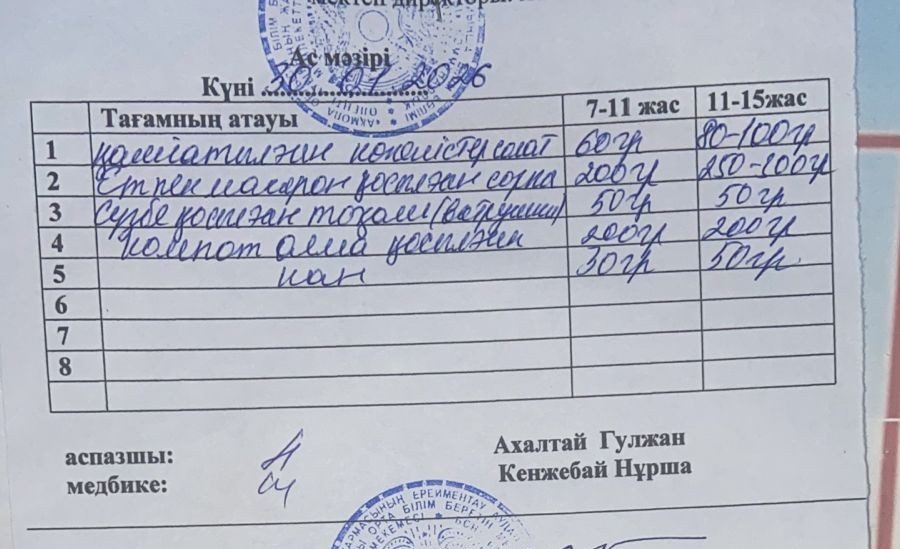 мектеп директоры:
Ас мәзірі
Күні 30.01.2026
Тағамның атауы 7-11 жас 11-15жас
1 қайнатылған көкөністер салат 60гр 80-100гр
2 Етпен макарон қосылған сорпа 200гр 250-300гр
3 Сүзбе қосылған тоқаш (ватрушки) 50гр 50гр
4 компот алма қосылған 200гр 200гр
5 нан 30гр 50гр.
6
7
8
аспазшы: Ахалтай Гулжан
медбике: Кенжебай Нұрша
ЕРЕЙМЕНТАУ АУДА
ОРТА БІЛІМ БЕРЕТІН
МЕКЕМЕСІ
БСН